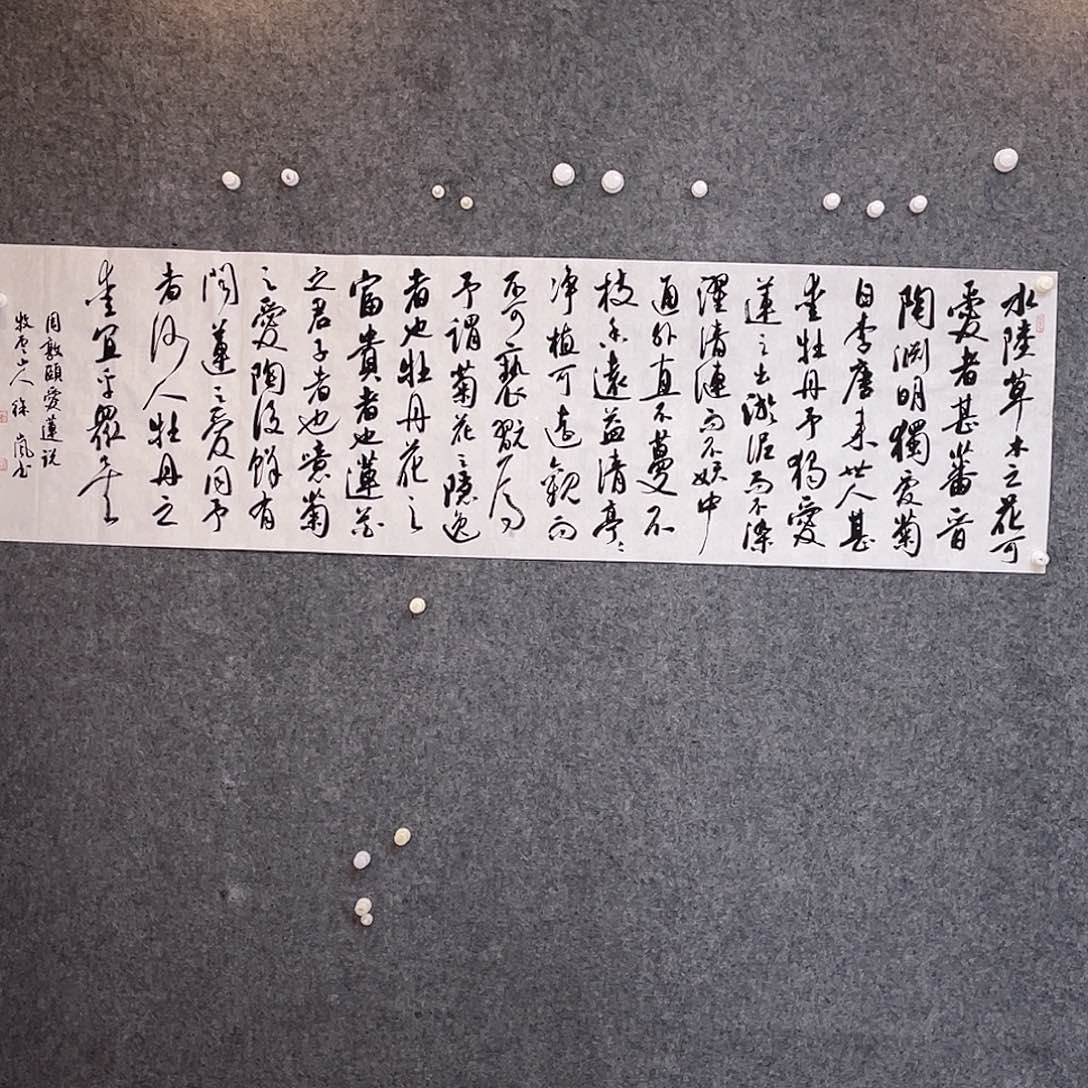 水陸草木之花可
愛者甚蕃晋
陶渊明獨愛菊
自李唐来世人甚
愛牡丹予独愛
蓮之出淤泥而不染
濯清漣而不妖中
通外直不蔓不
枝香遠益清亭〻
净植可遠觀而
不可褻翫焉
予謂菊花之隱逸
者也牡丹花之
富貴者也蓮花
之君子者也噫菊
之愛陶後鮮有
聞蓮之愛同予
者何人牡丹之
愛宜乎眾矣
周敦頤愛蓮説
牧雲山人徐嵐书